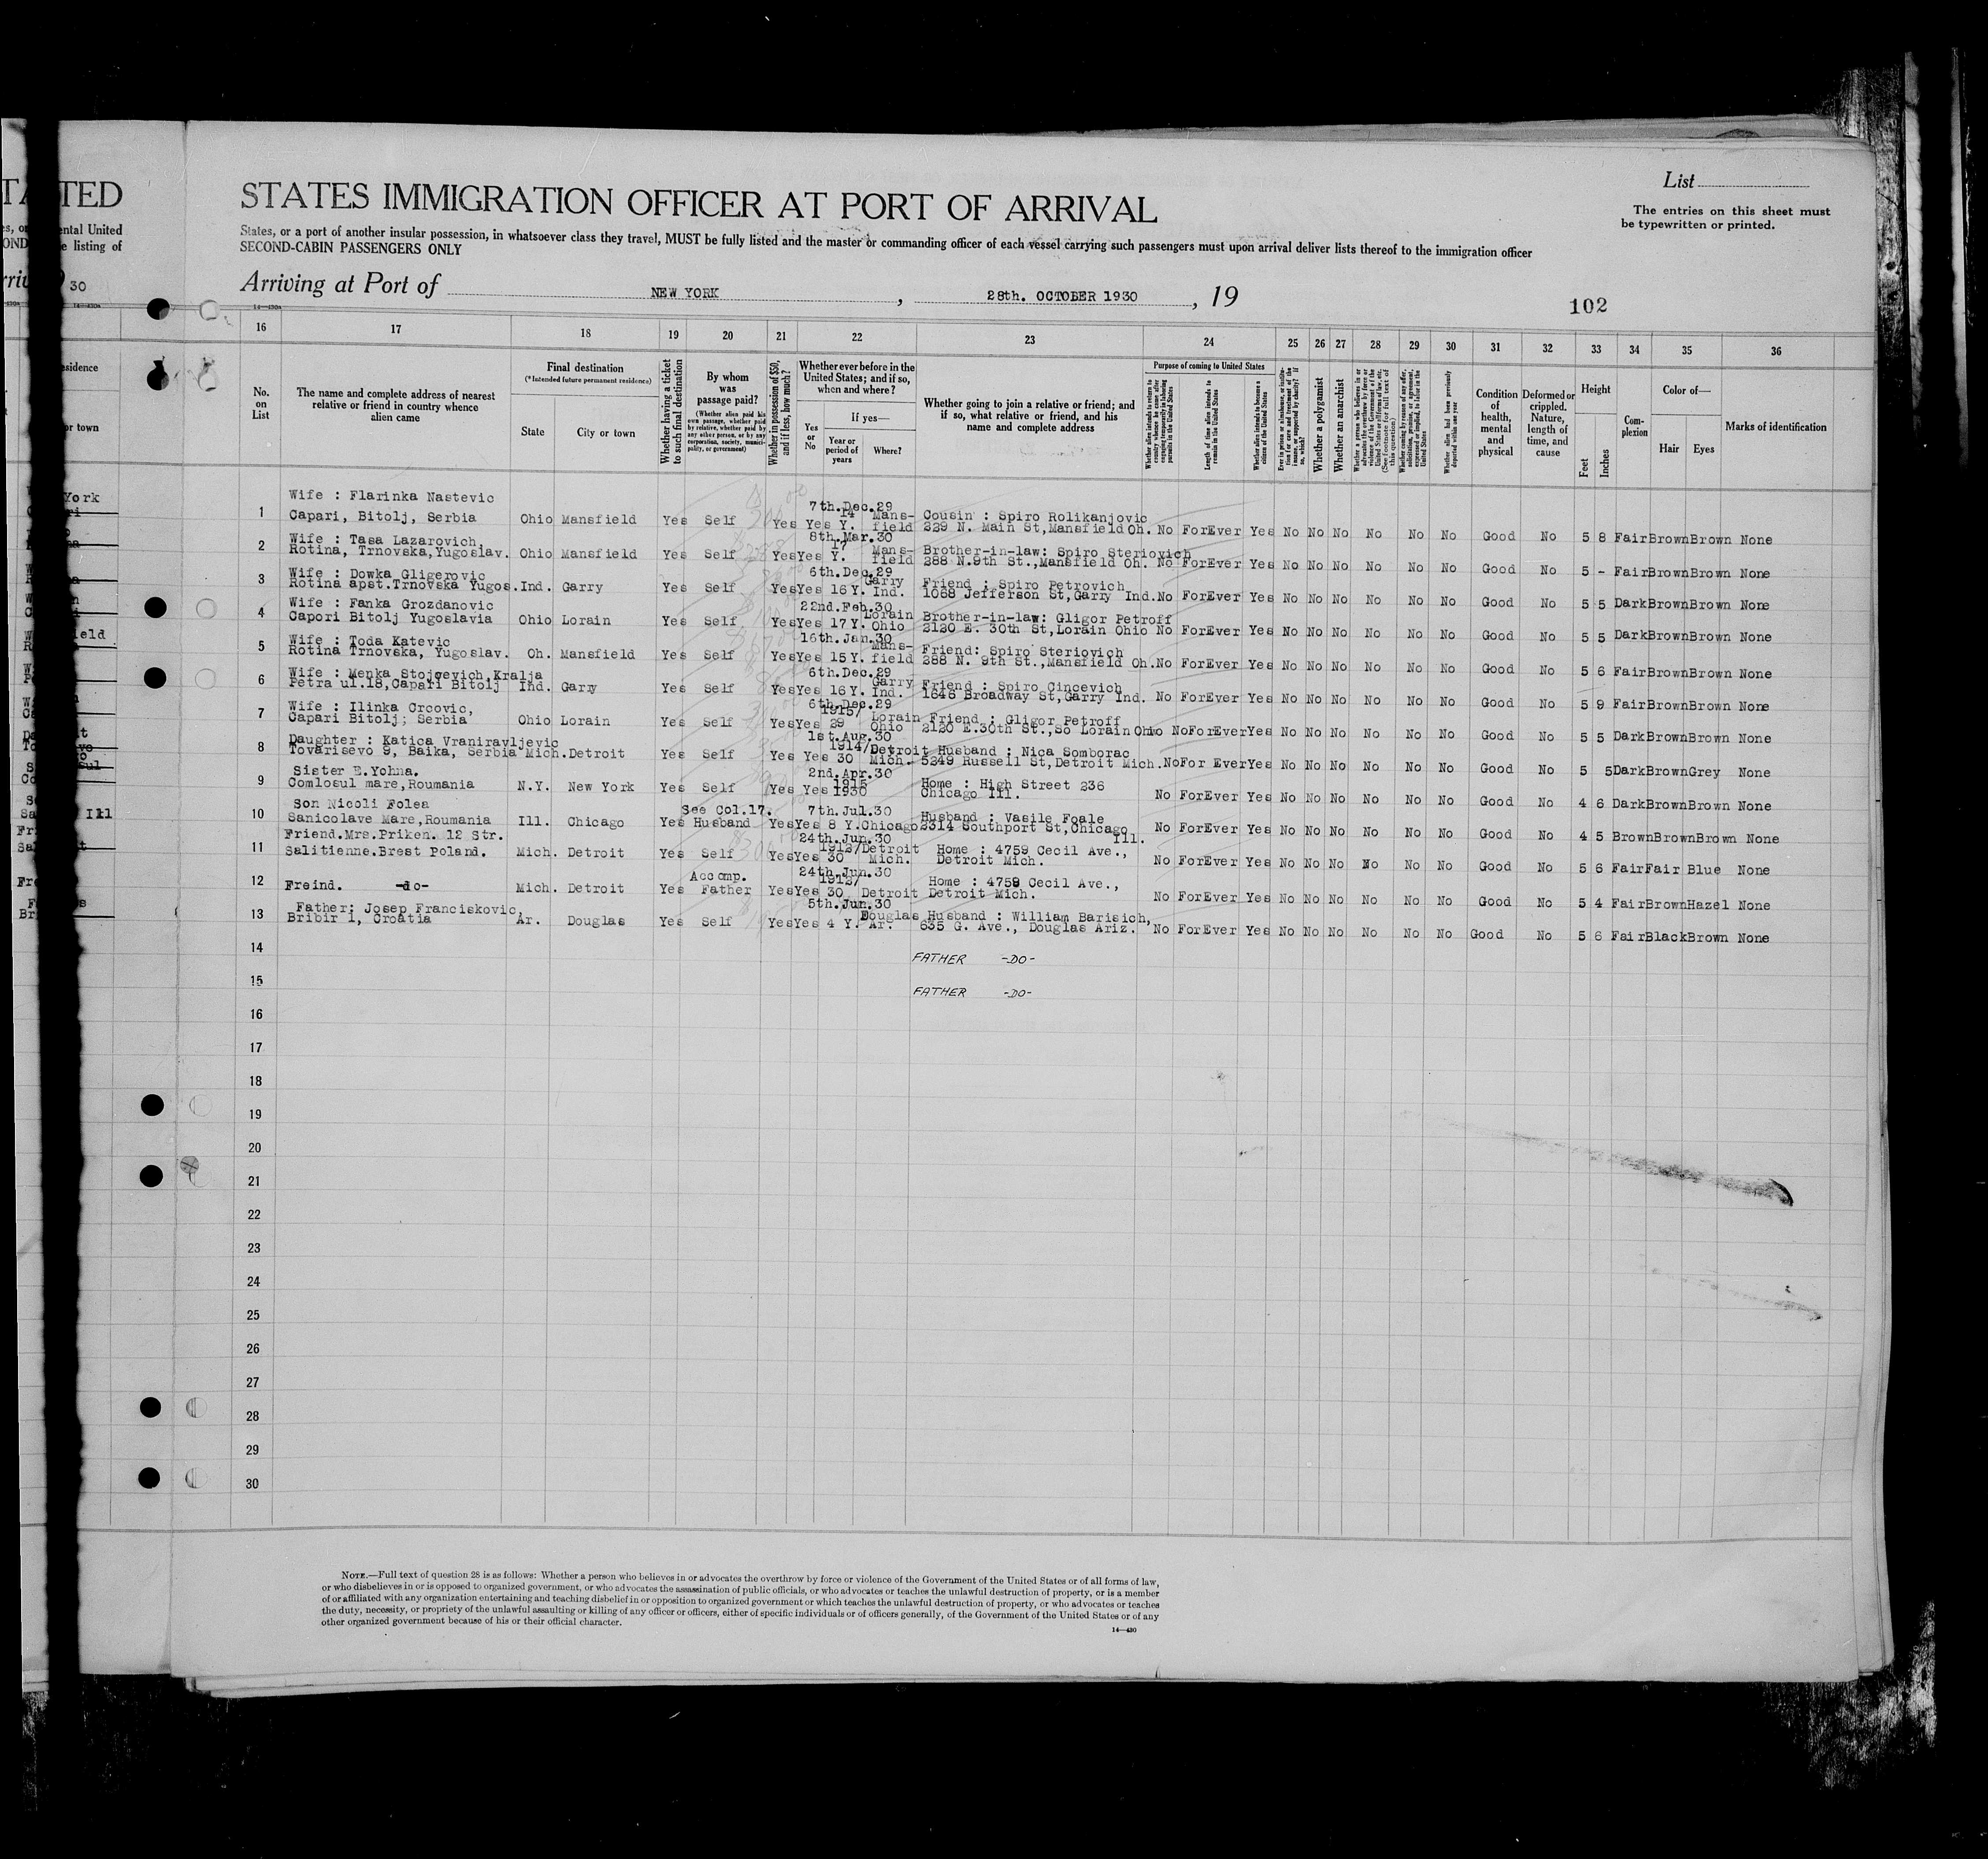 TATED
STATES IMMIGRATION OFFICER AT PORT OF ARRIVAL
List
The entries on this sheet must
be typewritten or printed.
ental United
e listing of
States, or a port of another insular possession, in whatsoever class they travel, MUST be fully listed and the master or commanding officer of each vessel carrying such passengers must upon arrival deliver lists thereof to the immigration officer
SECOND-CABIN PASSENGERS ONLY
30
Arriving at Port of NEW YORK, 28th. OCTOBER 1930, 19
102
16 17 18 19 20 21 22 23 24 25 26 27 28 29 30 31 32 33 34 35 36
No. on List
The name and complete address of nearest relative or friend in country whence alien came
Final destination
(*Intended future permanent residence)
State
City or town
Whether having a ticket to such final destination
By whom was passage paid?
(Whether alien paid his own passage, whether paid by relative, whether paid by any other person, or by any corporation, society, municipality, or government)
Whether in possession of $50, and if less, how much?
Whether ever before in the United States; and if so, when and where?
Yes or No
If yes—
Year or period of years
Where?
Whether going to join a relative or friend; and if so, what relative or friend, and his name and complete address
Purpose of coming to United States
Length of time alien intends to remain in the United States
Whether alien intends to become a citizen of the United States
Whether a polygamist
Whether an anarchist
Condition of health, mental and physical
Deformed or crippled. Nature, length of time, and cause
Height
Feet
Inches
Complexion
Color of—
Hair
Eyes
Marks of identification
Wife : Flarinka Nastevic 7th.Dec.29
1 Capari, Bitolj, Serbia Ohio Mansfield Yes Self Yes Yes 14 Y. Mansfield Cousin : Spiro Rolikanjovic 229 N. Main St,Mansfield Oh. No ForEver Yes No No No No No No Good No 5 8 Fair Brown Brown None
Wife : Tasa Lazarovich, 8th.Mar.30
2 Rotina, Trnovska,Yugoslav. Ohio Mansfield Yes Self Yes Yes 17 Y. Mansfield Brother-in-law: Spiro Steriovich 288 N.9th St.,Mansfield Oh. No ForEver Yes No No No No No No Good No 5 - Fair Brown Brown None
Wife : Dowka Gligerovic 6th.Dec.29
3 Rotina apst.Trnovska Yugos. Ind. Garry Yes Self Yes Yes 16 Y. Garry Ind. Friend : Spiro Petrovich 1068 Jefferson St,Garry Ind. No ForEver Yes No No No No No No Good No 5 5 Dark Brown Brown None
Wife : Fanka Grozdanovic 22nd.Feb.30
4 Capori Bitolj Yugoslavia Ohio Lorain Yes Self Yes Yes 17 Y. Lorain Ohio Brother-in-law: Gligor Petroff 2120 E. 30th St,Lorain Ohio No ForEver Yes No No No No No No Good No 5 5 Dark Brown Brown None
Wife : Toda Katevic 16th.Jan.30
5 Rotina Trnovska, Yugoslav. Oh. Mansfield Yes Self Yes Yes 15 Y. Mansfield Friend: Spiro Steriovich 288 N. 9th St.,Mansfield Oh. No ForEver Yes No No No No No No Good No 5 6 Fair Brown Brown None
Wife : Menka Stojcevich,Kralja 6th.Dec.29
6 Petra ul.18,Capari Bitolj Ind. Garry Yes Self Yes Yes 16 Y. Garry Ind. Friend : Spiro Cincevich 1646 Broadway St,Garry Ind. No ForEver Yes No No No No No No Good No 5 9 Fair Brown Brown None
Wife : Ilinka Crcovic, 6th.Dec.29
7 Capari Bitolj; Serbia Ohio Lorain Yes Self Yes Yes 1915/29 Lorain Ohio Friend : Gligor Petroff 2120 E.30th St.,So Lorain Ohio No ForEver Yes No No No No No No Good No 5 5 Dark Brown Brown None
Daughter : Katica Vraniravljevic 1st.Aug.30
8 Tovarisevo 9, Baika, Serbia Mich. Detroit Yes Self Yes Yes 1914/30 Detroit Mich. Husband : Nica Somborac 5249 Russell St,Detroit Mich. No For Ever Yes No No No No No No Good No 5 5 Dark Brown Grey None
Sister E.Yohna. 2nd.Apr.30
9 Comlosul mare,Roumania N.Y. New York Yes Self Yes Yes 1915 1930 Home : High Street 236 Chicago Ill. No ForEver Yes No No No No No No Good No 4 6 Dark Brown Brown None
Son Nicoli Folea See Col.17. 7th.Jul.30
10 Sanicolave Mare,Roumania Ill. Chicago Yes Husband Yes Yes 8 Y. Chicago Husband : Vasile Foale 2314 Southport St,Chicago Ill. No ForEver Yes No No No No No No Good No 4 5 Brown Brown Brown None
Friend.Mrs.Priken. 12 Str. 24th.Jun.30
11 Salitienne.Brest Poland. Mich. Detroit Yes Self Yes Yes 1912/30 Detroit Mich. Home : 4759 Cecil Ave., Detroit Mich. No ForEver Yes No No No No No No Good No 5 6 Fair Fair Blue None
Accomp. 24th.Jun.30
12 Freind. -do- Mich. Detroit Yes Father Yes Yes 1912/30 Detroit Home : 4759 Cecil Ave., Detroit Mich. No ForEver Yes No No No No No No Good No 5 4 Fair Brown Hazel None
Father: Josep Franciskovic, 5th.Jun.30
13 Bribir 1, Croatia Ar. Douglas Yes Self Yes Yes 4 Y. Douglas Ar. Husband : William Barisich, 635 G. Ave., Douglas Ariz. No ForEver Yes No No No No No No Good No 5 6 Fair Black Brown None
14 FATHER -DO-
15 FATHER -DO-
16
17
18
19
20
21
22
23
24
25
26
27
28
29
30
NOTE.—Full text of question 28 is as follows: Whether a person who believes in or advocates the overthrow by force or violence of the Government of the United States or of all forms of law,
or who disbelieves in or is opposed to organized government, or who advocates the assassination of public officials, or who advocates or teaches the unlawful destruction of property, or is a member
of or affiliated with any organization entertaining and teaching disbelief in or opposition to organized government or which teaches the unlawful destruction of property, or who advocates or teaches
the duty, necessity, or propriety of the unlawful assaulting or killing of any officer or officers, either of specific individuals or of officers generally, of the Government of the United States or of any
other organized government because of his or their official character.
14—430